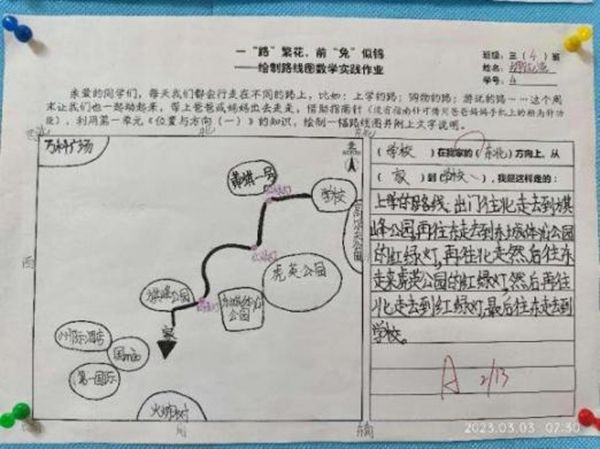 一“路”繁花，前“兔”似锦
——绘制路线图数学实践作业
班级：三（4）班
姓名：
学号：4
亲爱的同学们，每天我们都会行走在不同的路上，比如：上学的路；购物的路；游玩的路……这个周
末让我们也一起动起来，带上爸爸或妈妈出去走走，借助指南针（没有指南针可借用爸爸妈妈手机上的指南针功
能），利用第一单元《位置与方向（一）》的知识，绘制一幅路线图并附上文字说明。
西北
北
东北
万科广场
北
黄旗一号
学校
红绿灯
西
红绿灯
虎英公园
旗峰公园
红绿灯
东城体育公园
家
洲际酒店
国
第一国际
火炼树
南
（学校）在我家的（东北）方向上，从
（家）到（学校），我是这样走的：
上学的路线：出门往北走去到旗
峰公园，再往东走去到东城体育公园
的红绿灯，再往北走然后往东
走来虎英公园的红绿灯，然后再往
北走去到红绿灯，最后往东走去到
学校。
A 2/13
2023.03.03 07:30